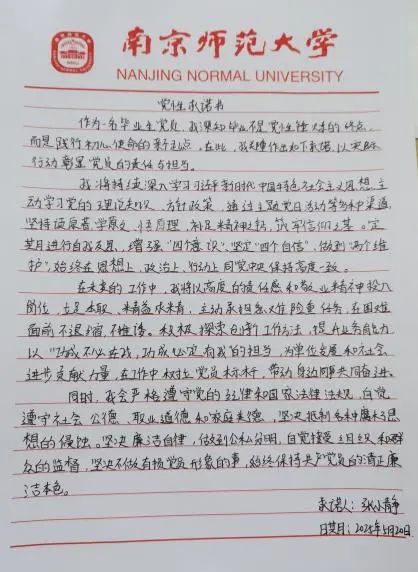 南京师范大学
NANJING NORMAL UNIVERSITY
党性承诺书
作为一名毕业生党员，我深知毕业不是党性锤炼的终点，
而是践行初心使命的新起点。在此，我郑重作出如下承诺，以实际
行动彰显党员的责任与担当。
我将持续深入学习习近平新时代中国特色社会主义思想，主
动学习党的理论知识、方针政策，通过主题党日活动等多种渠道，
坚持读原著、学原文、悟原理，补足精神之钙，筑牢信仰之基。定
期进行自我反思，增强“四个意识”、坚定“四个自信”、做到“两个维
护”，始终在思想上、政治上、行动上同党中央保持高度一致。
在未来的工作中，我将以高度的责任感和敬业精神投入
岗位，立足本职，精益求精，主动承担急难险重任务，在困难
面前不退缩、不推诿。积极探索创新工作方法，提升业务能力
以“功成不必在我，功成必定有我”的担当，为单位发展和社会
进步贡献力量，在工作中树立党员标杆，带动身边同事共同奋进。
同时，我会严格遵守党的纪律和国家法律法规，自觉
遵守社会公德、职业道德和家庭美德，坚决抵制各种腐朽思
想的侵蚀。坚决廉洁自律，做到公私分明，自觉接受组织和群
众的监督，坚决不做有损党员形象的事，始终保持共产党员的清正廉
洁本色。
承诺人：张小静
日期：2025年5月20日